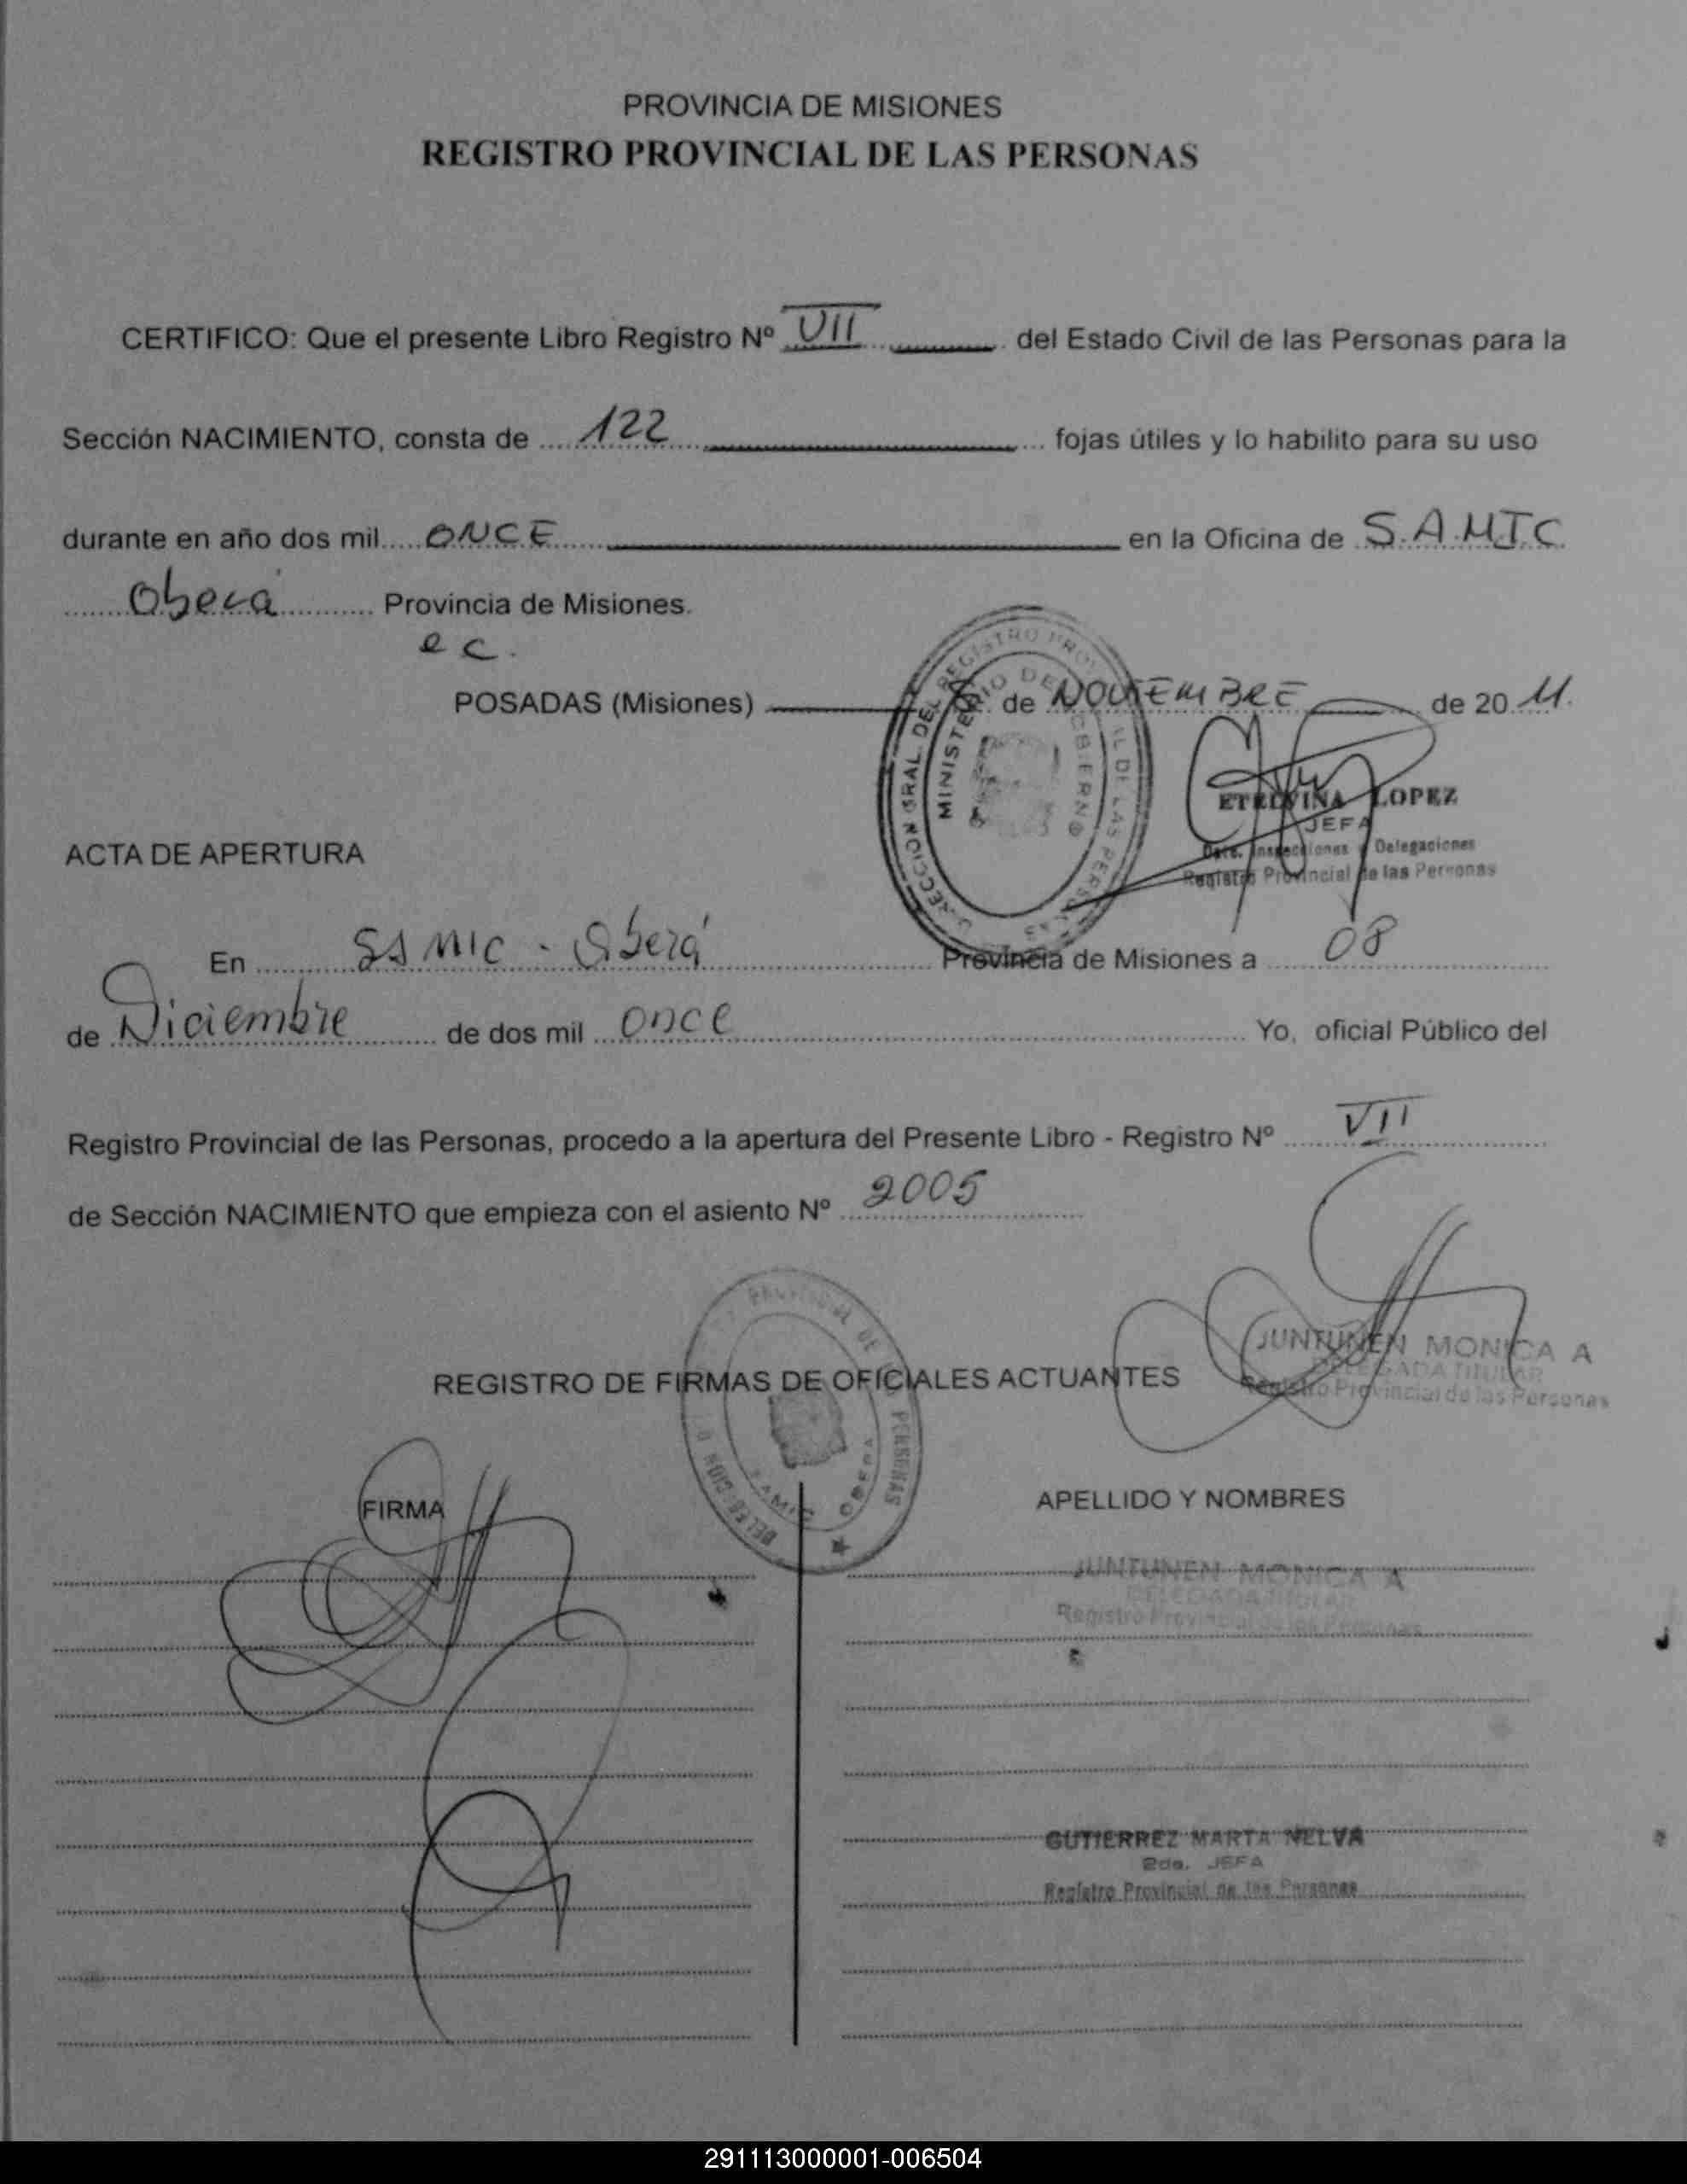 PROVINCIA DE MISIONES
REGISTRO PROVINCIAL DE LAS PERSONAS
CERTIFICO: Que el presente Libro Registro Nº VII del Estado Civil de las Personas para la
Sección NACIMIENTO, consta de 122 fojas útiles y lo habilito para su uso
durante en año dos mil ONCE en la Oficina de S.A.M.I.C.
Oberá Provincia de Misiones.
e c.
POSADAS (Misiones) de NOVIEMBRE de 2011.
DIRECCION GRAL. DEL REGISTRO PROVINCIAL DE LAS PERSONAS
MINISTERIO DE GOBIERNO
ETELVINA LOPEZ
JEFA
Dpto. Inspecciones y Delegaciones
Registro Provincial de las Personas
ACTA DE APERTURA
En SAMIC - Oberá Provincia de Misiones a 08
de Diciembre de dos mil once Yo, oficial Público del
Registro Provincial de las Personas, procedo a la apertura del Presente Libro - Registro Nº VII
de Sección NACIMIENTO que empieza con el asiento Nº 2005
JUNTUNEN MONICA A
DELEGADA TITULAR
Registro Provincial de las Personas
REGISTRO DE FIRMAS DE OFICIALES ACTUANTES
PROVINCIAL DE PERSONAS
SAMIC OBERA
FIRMA APELLIDO Y NOMBRES
JUNTUNEN MONICA A
DELEGADA TITULAR
Registro Provincial de las Personas
GUTIERREZ MARTA NELVA
2da. JEFA
Registro Provincial de las Personas
291113000001-006504